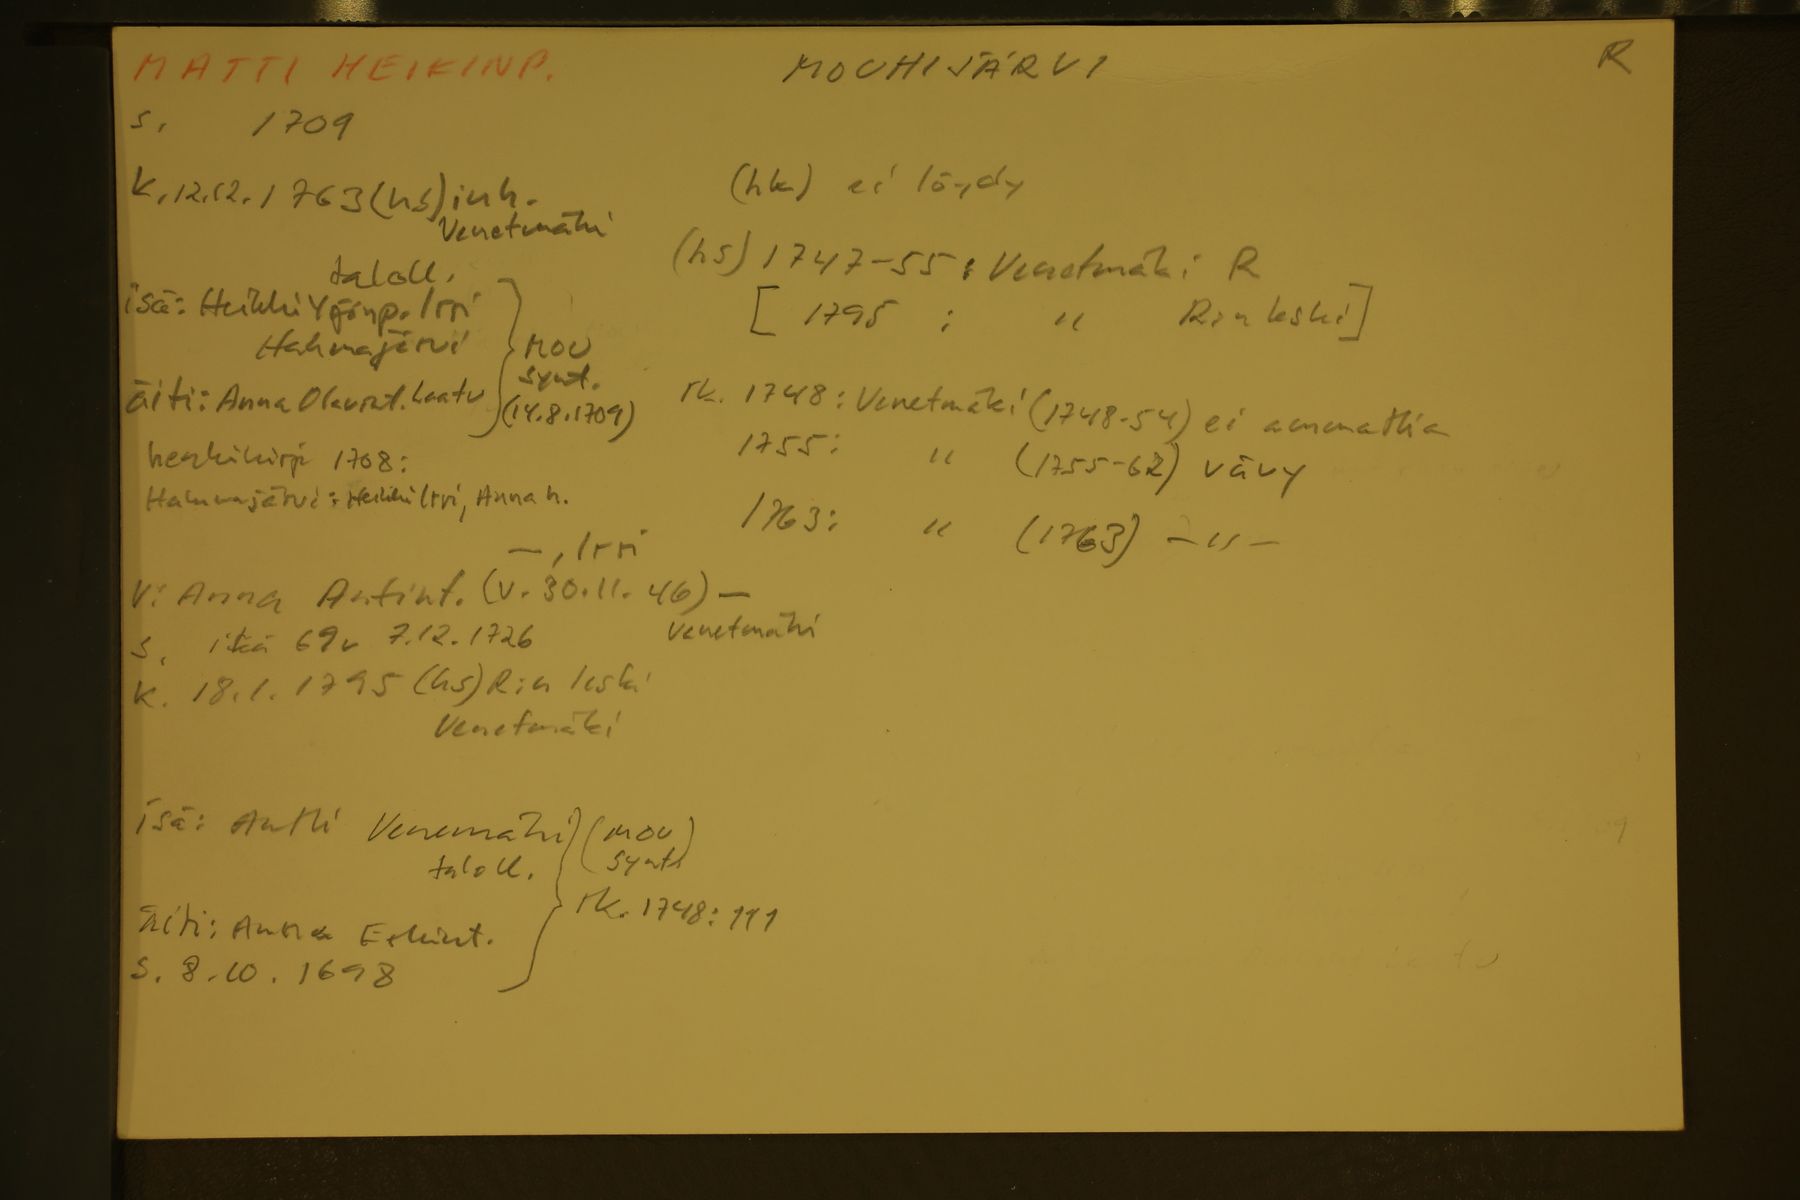 MATTI HEIKINP. MOUHIJÄRVI R
s. 1709
k. 12.12.1763 (hs) inh. (hk) ei löydy
Venetmäki
(hs) 1747-55: Venetmäki R
taloll.
isä: Heikki Yrjönp. Irri [ 1795 : " R:n leski]
Hahmajärvi MOU
synt.
äiti: Anna Olavint. Laatu (14.8.1709) rk. 1748: Venetmäki (1748-54) ei ammattia
henkikirja 1708: 1755: " (1755-62) vävy
Hahmajärvi: Heikki Irri, Anna h.
1763: " (1763) -"-
—, Irri
V: Anna Antint. (v. 30.11.46) —
Venetmäki
s. ikä 69v 7.12.1726
k. 18.1.1795 (hs) R:n leski
Venetmäki
isä: Antti Venemäki (MOU
taloll. synt)
rk. 1748: 111
äiti: Anna Erkint.
s. 8.10.1698